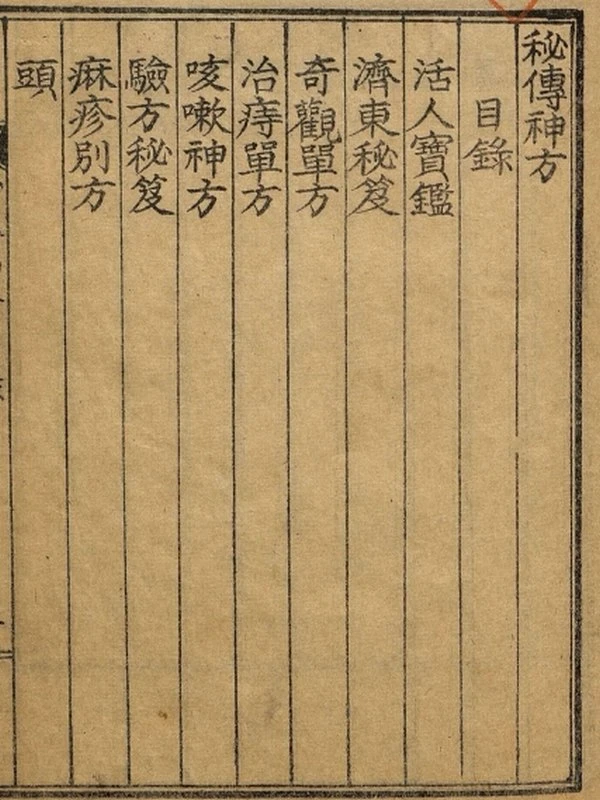 秘傳神方
目錄
活人寶鑑
濟東秘笈
奇觀單方
治痔單方
咳嗽神方
驗方秘笈
痳疹別方
頭